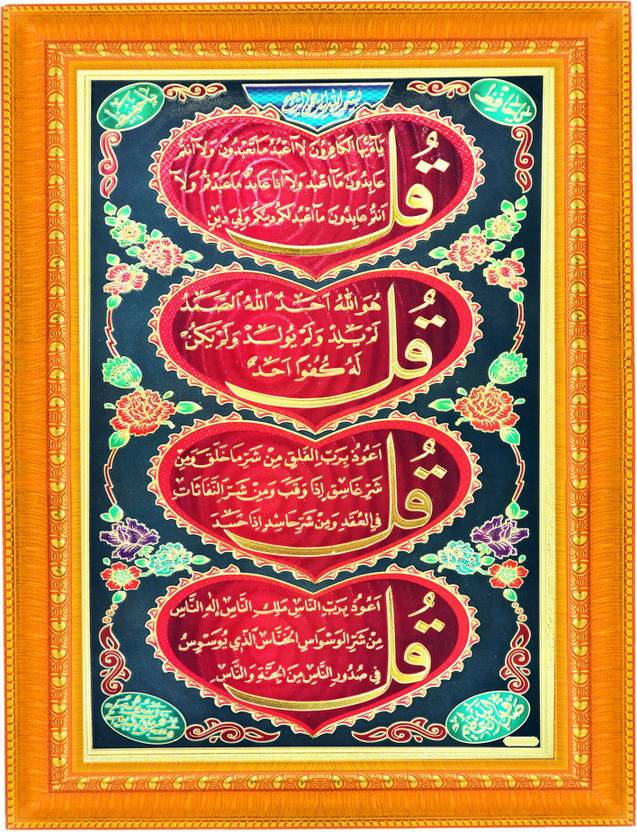 بسم الله الرحمن الرحيم
يا حفيظ
قل
يَا أَيُّهَا الْكَافِرُونَ لَا أَعْبُدُ مَا تَعْبُدُونَ وَلَا أَنْتُمْ
عَابِدُونَ مَا أَعْبُدُ وَلَا أَنَا عَابِدٌ مَا عَبَدْتُمْ وَلَا
أَنْتُمْ عَابِدُونَ مَا أَعْبُدُ لَكُمْ دِينُكُمْ وَلِيَ دِينِ
قُل
هُوَ اللهُ أَحَدٌ اللهُ الصَّمَدُ
لَمْ يَلِدْ وَلَمْ يُولَدْ وَلَمْ يَكُنْ
لَهُ كُفُوًا أَحَدٌ
قُل
أَعُوذُ بِرَبِّ الْفَلَقِ مِنْ شَرِّ مَا خَلَقَ وَمِنْ
شَرِّ غَاسِقٍ إِذَا وَقَبَ وَمِنْ شَرِّ النَّفَّاثَاتِ
فِي الْعُقَدِ وَمِنْ شَرِّ حَاسِدٍ إِذَا حَسَدَ
قُل
أَعُوذُ بِرَبِّ النَّاسِ مَلِكِ النَّاسِ إِلَهِ النَّاسِ
مِنْ شَرِّ الْوَسْوَاسِ الْخَنَّاسِ الَّذِي يُوَسْوِسُ
فِي صُدُورِ النَّاسِ مِنَ الْجِنَّةِ وَالنَّاسِ